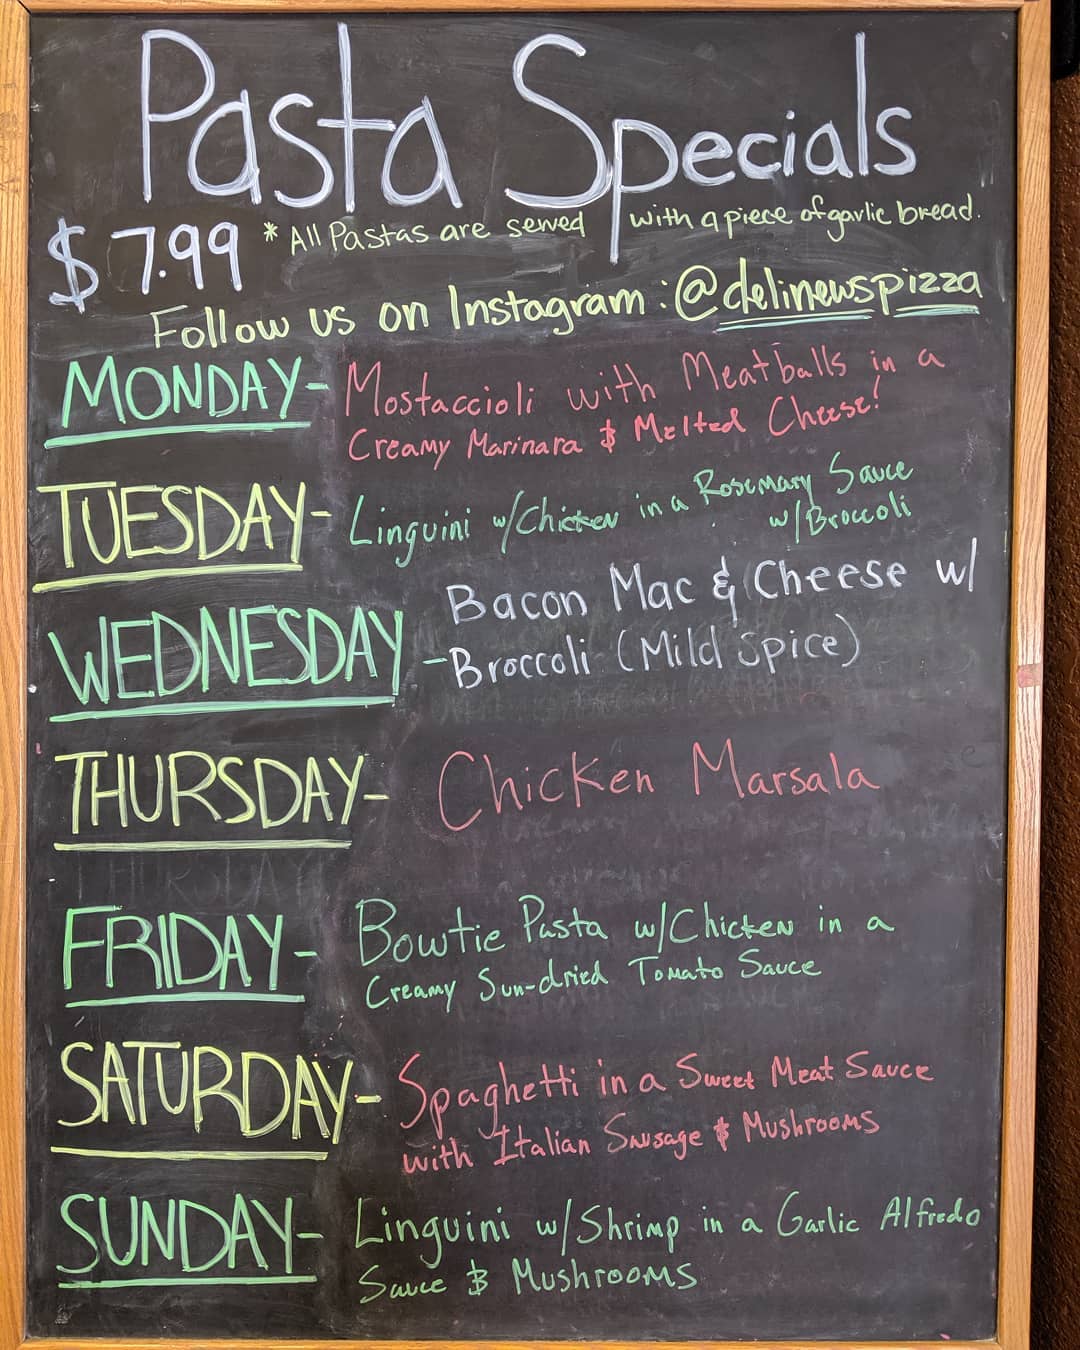 Pasta Specials
$7.99 * All Pastas are served with a piece of garlic bread.
Follow us on Instagram: @delinewspizza
MONDAY- Mostaccioli with Meatballs in a
Creamy Marinara & Melted Cheese!
TUESDAY- Linguini w/Chicken in a Rosemary Sauce
w/Broccoli
Bacon Mac & Cheese w/
WEDNESDAY - Broccoli (Mild Spice)
THURSDAY- Chicken Marsala
FRIDAY- Bowtie Pasta w/Chicken in a
Creamy Sun-dried Tomato Sauce
SATURDAY- Spaghetti in a Sweet Meat Sauce
with Italian Sausage & Mushrooms
SUNDAY- Linguini w/Shrimp in a Garlic Alfredo
Sauce & Mushrooms